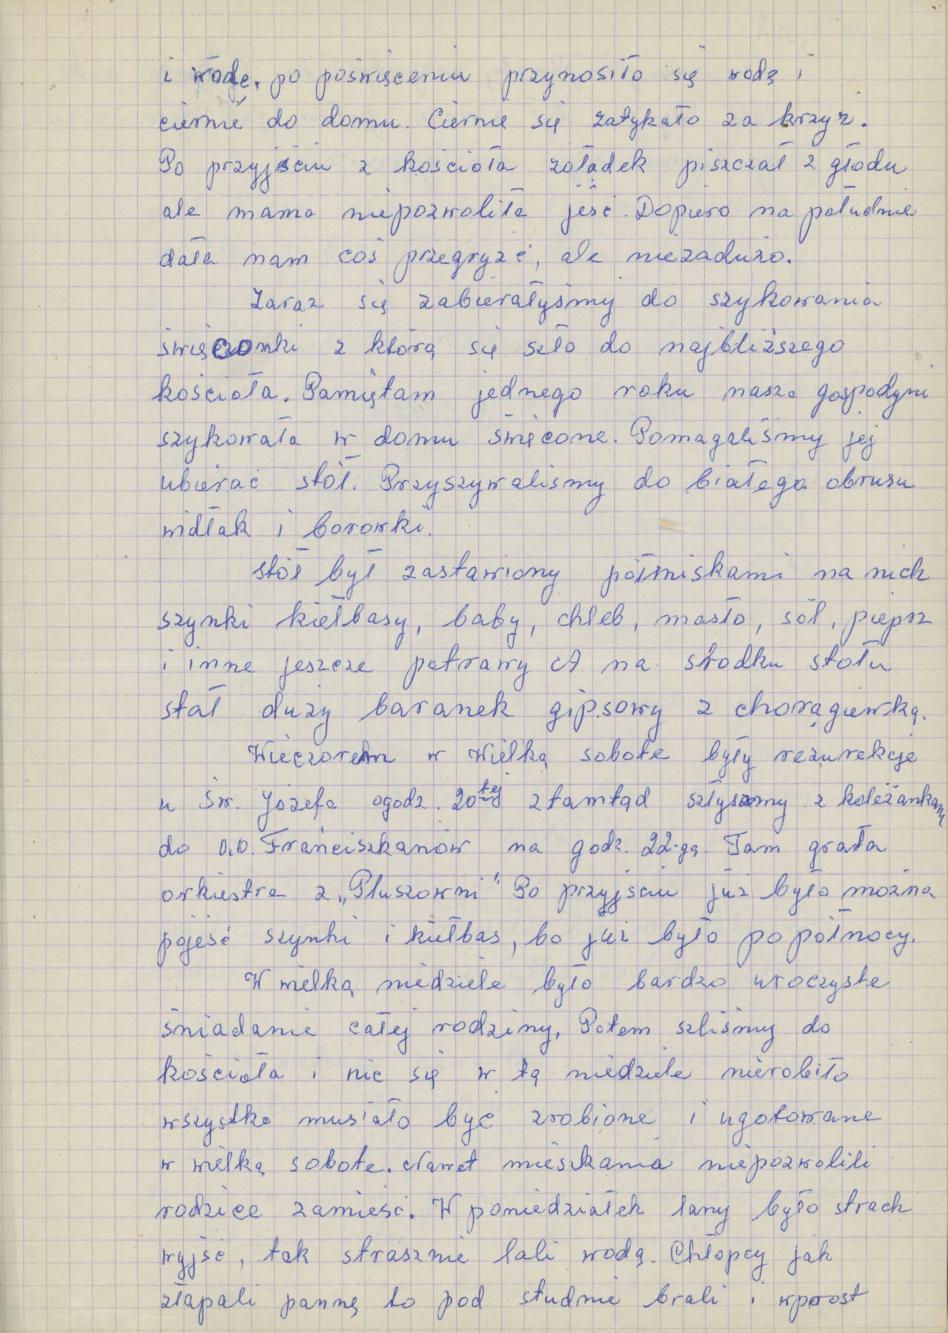 i wodę, po poświęceniu przynosiło się wodę i
ciernie do domu. Ciernie się zatykało za krzyż.
Po przyjściu z kościoła żołądek piszczał z głodu
ale mama niepozwoliła jeść. Dopiero na południe
dała nam coś przegryźć, ale niezadużo.
Zaraz się zabierałyśmy do szykowania
święconki z którą się szło do najbliższego
kościoła. Pamiętam jednego roku nasza gospodyni
szykowała w domu święcone. Pomagaliśmy jej
ubierać stół. Przyszywaliśmy do białego obrusu
widłak i borowki.
Stół był zastawiony półmiskami na nich
szynki kiełbasy, baby, chleb, masło, sól, pieprz
i inne jeszcze potrawy A na środku stołu
stał duży baranek gipsowy z chorągiewką.
Wieczorem w Wielką sobote były rezurekcje
u Św. Józefa ogodz. 20tej ztamtąd szłyszmy z koleżankami
do O.O. Franciszkanów na godz. 22-gą. Tam grała
orkiestra z „Pluszowni" Po przyjściu już było można
pojeść szynki i kiełbas, bo już było po północy.
W wielką niedziele było bardzo uroczyste
śniadanie całej rodziny. Potem szliśmy do
kościoła i nic się w tą niedziele nierobiło
wszystko musiało być zrobione i ugotowane
w wielką sobote. Nawet mieszkania niepozwolili
rodzice zamieść. W poniedziałek lany było strach
wyjść, tak strasznie lali wodą. Chłopcy jak
złapali pannę to pod studnie brali i wprost